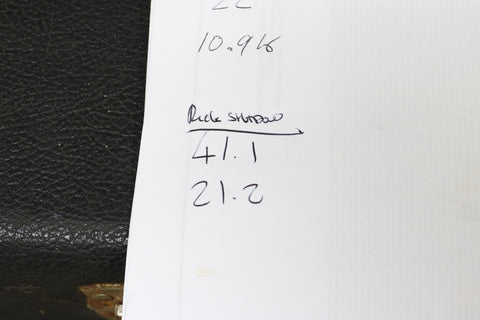 22
10.96
Rick SHADOW
41.1
21.2